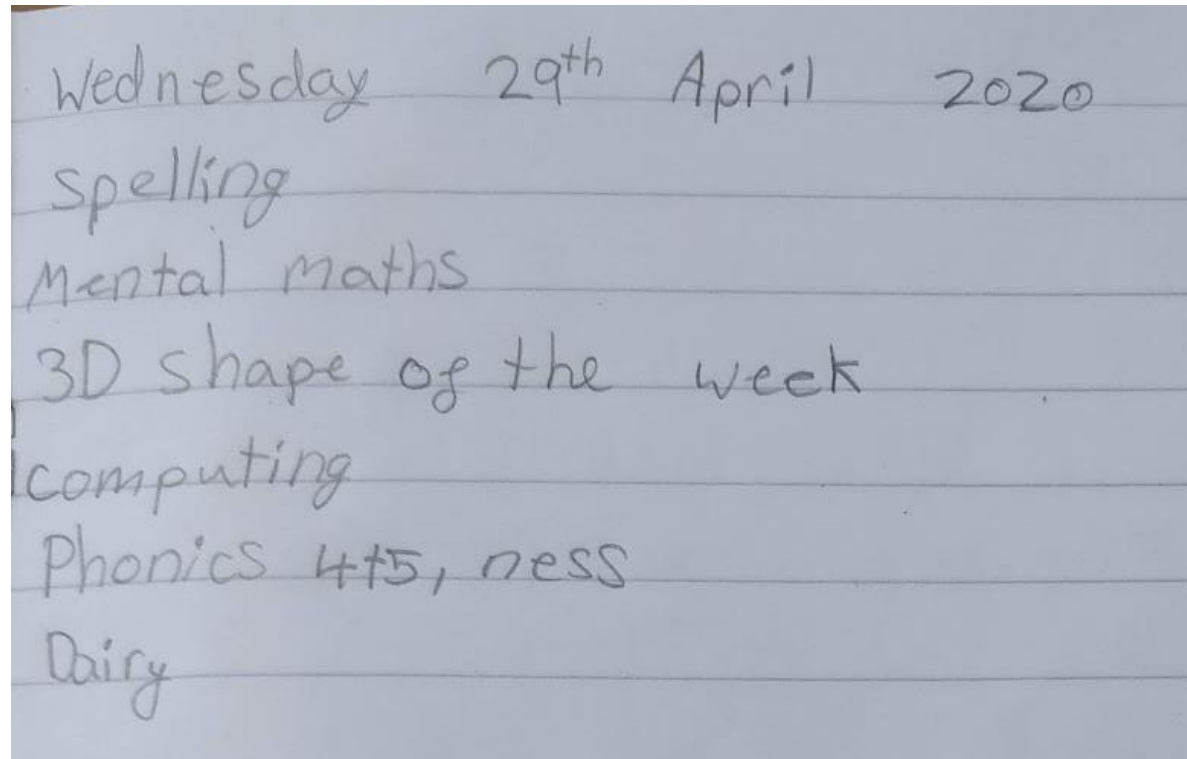 Wednesday 29th April 2020
Spelling
Mental maths
3D shape of the week
computing
Phonics 4+5, ness
Dairy